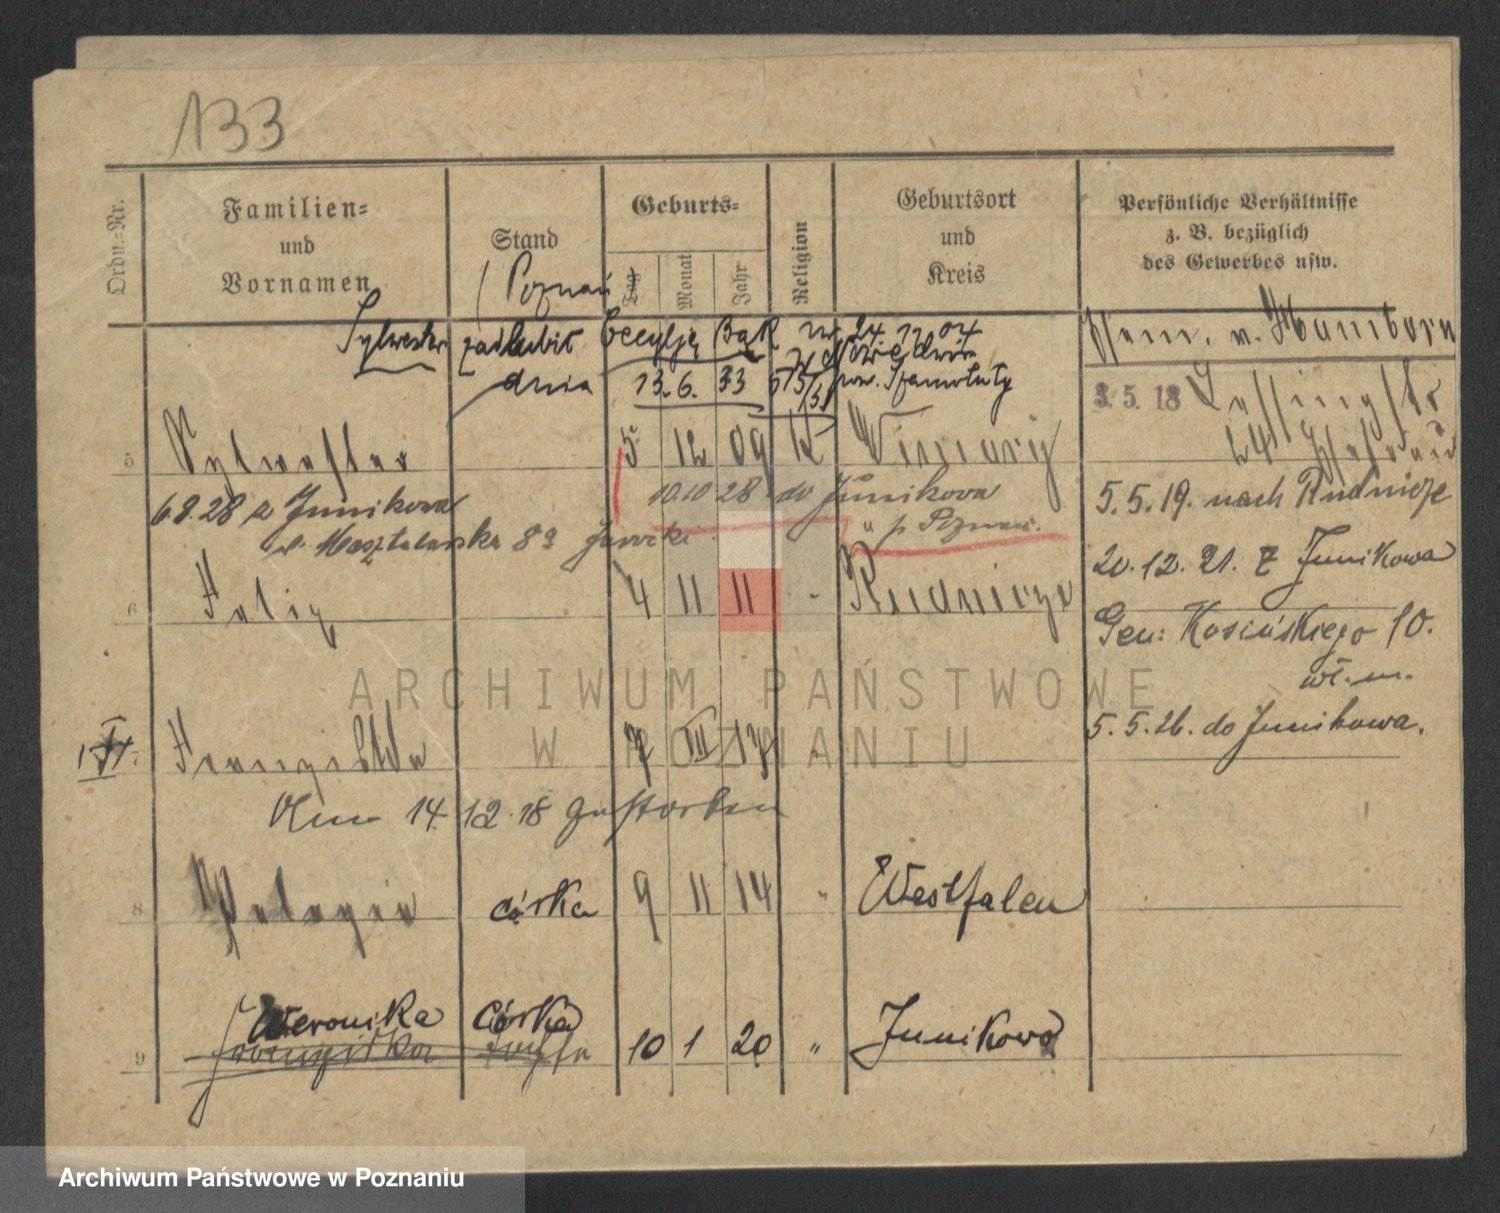 133
Ordn.-Nr.
Familien-
und
Vornamen
Stand
Geburts-
Tag
Monat
Jahr
Religion
Geburtsort
und
Kreis
Persönliche Verhältnisse
z. B. bezüglich
des Gewerbes usw.
Poznań
Sylwester zaślubił Cecylję Bąk ur. 24 11 04
dnia 13. 6. 33 pow. Szamotuły
Ham. v. Hamborn
3.5.18
5 Sylwester 5 12 09 K
24
6 8. 28 z Junikowa 10.10 28 do Junikowa
5.5.19. nach Rudnicze
ul. Masztalarska 8a p. Poznań.
20.12.21. z Junikowa
6 Feliz 4 11 11 " Rudnicze
Gen: Kosińskiego 10.
wł. m.
5.5.26. do Junikowa.
Franziska 7 III 17 "
Am 14. 12. 18 gestorben
8 Pelagia córka 9 11 14 " Westfalen
Weronika córka
9 Franziska 10 1 20 " Junikowo
ARCHIWUM PAŃSTWOWE
W POZNANIU
Archiwum Państwowe w Poznaniu